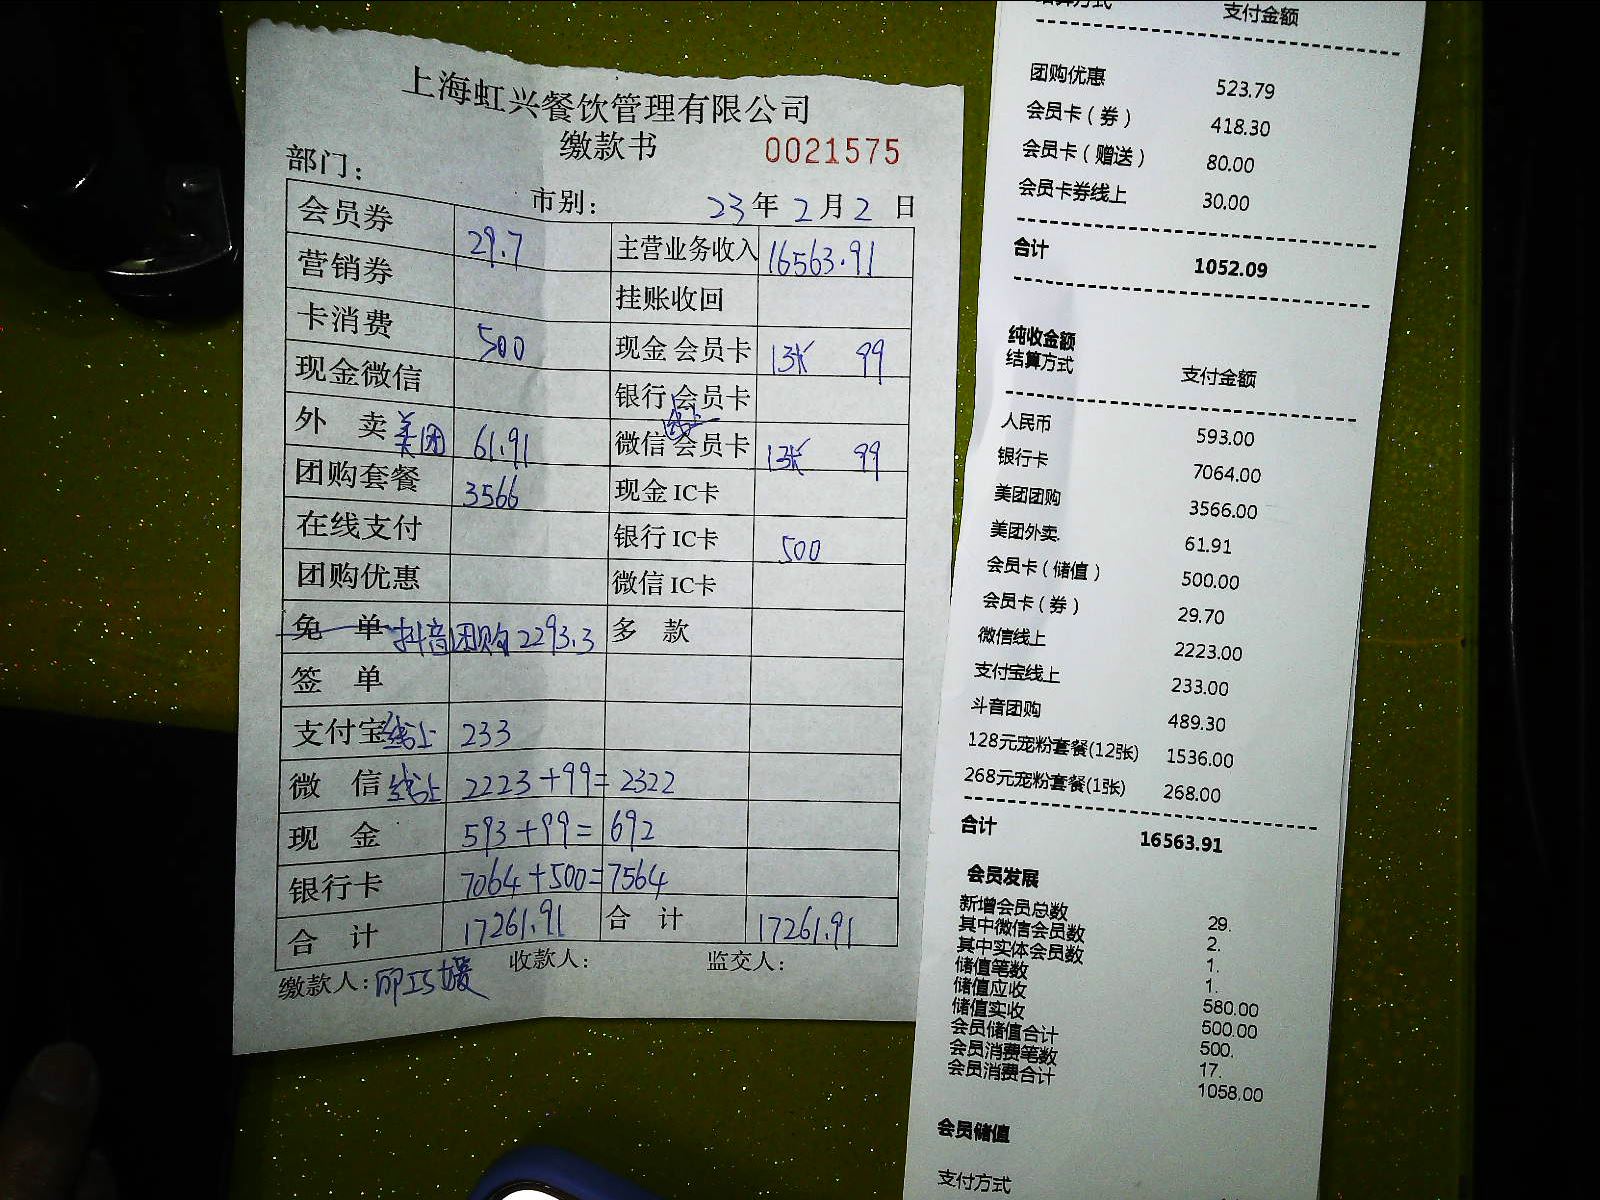 上海虹兴餐饮管理有限公司
缴款书 0021575
部门：
市别： 23年2月2日
会员券 29.7 主营业务收入 16563.91
营销券 挂账收回
卡消费 500 现金会员卡 1张 99
现金微信 银行会员卡
外卖美团 61.91 微信线上会员卡 1张 99
团购套餐 3566 现金IC卡
在线支付 银行IC卡 500
团购优惠 微信IC卡
免单 抖音团购 2293.3 多款
签单
支付宝线上 233
微信线上 2223+99=2322
现金 593+99=692
银行卡 7064+500=7564
合计 17261.91 合计 17261.91
缴款人： 收款人： 监交人：
结算方式 支付金额
团购优惠 523.79
会员卡（券） 418.30
会员卡（赠送） 80.00
会员卡券线上 30.00
合计 1052.09
纯收金额
结算方式 支付金额
人民币 593.00
银行卡 7064.00
美团团购 3566.00
美团外卖. 61.91
会员卡（储值） 500.00
会员卡（券） 29.70
微信线上 2223.00
支付宝线上 233.00
斗音团购 489.30
128元宠粉套餐(12张) 1536.00
268元宠粉套餐(1张) 268.00
合计 16563.91
会员发展
新增会员总数 29.
其中微信会员数 2.
其中实体会员数 1.
储值笔数 1.
储值应收 580.00
储值实收 500.00
会员储值合计 500.
会员消费笔数 17.
会员消费合计 1058.00
会员储值
支付方式